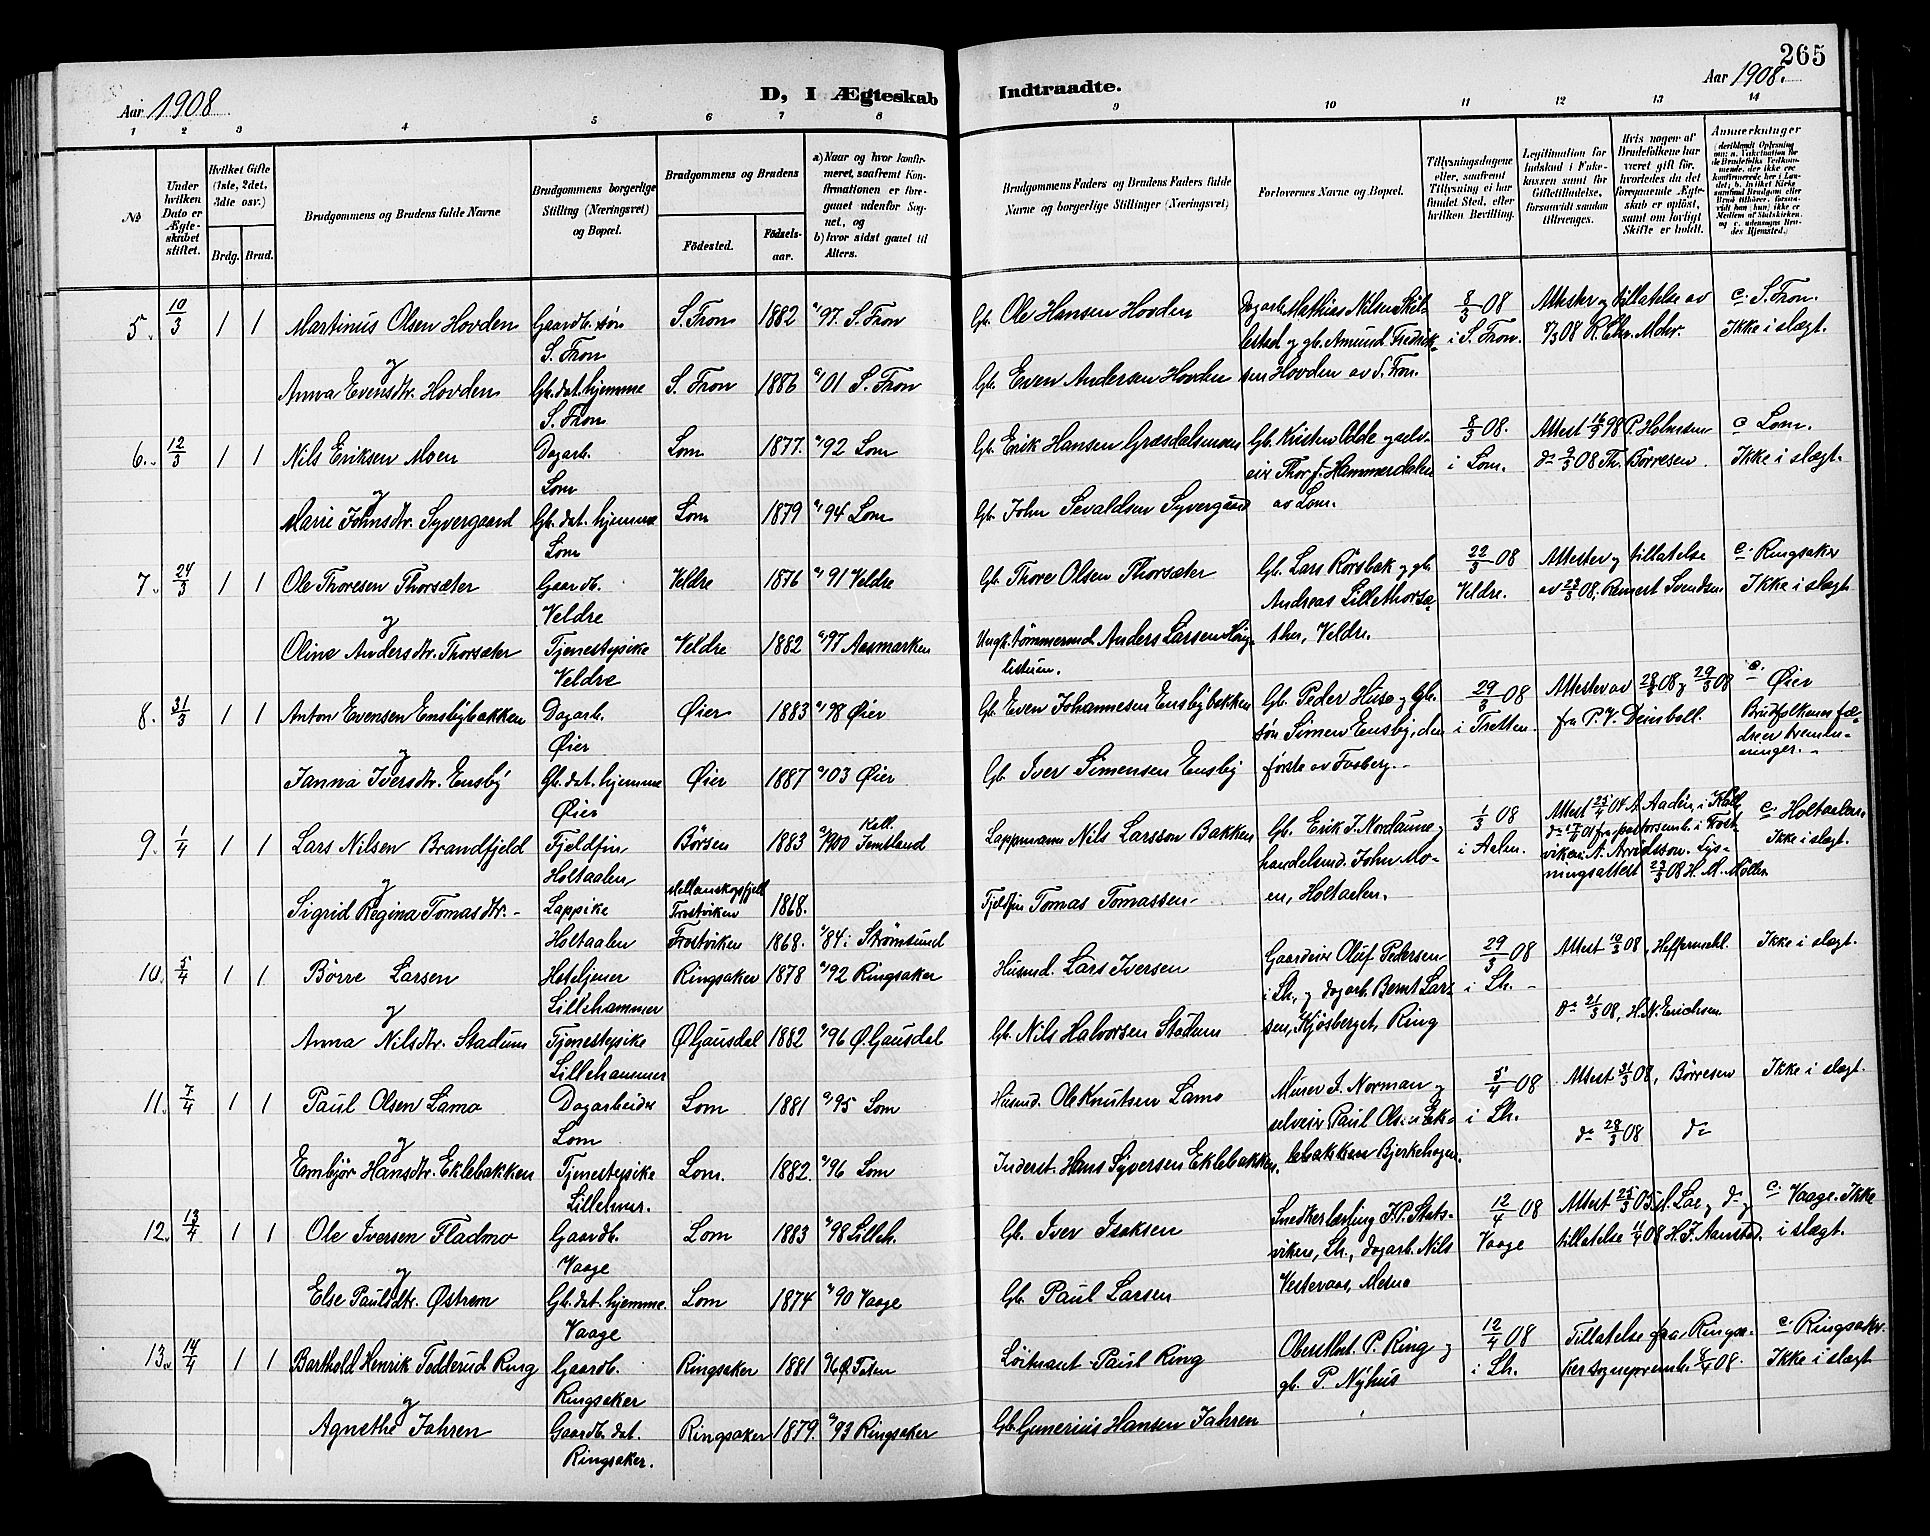 265
Aar 1908. D, I Ægteskab Indtraadte. Aar 1908.
1 2 3 4 5 6 7 8 9 10 11 12 13 14
No
Under hvilken Dato er Ægteskabet stiftet.
Hvilket Gifte (1ste, 2det, 3die osv.)
Brdg. Brud.
Brudgommens og Brudens fulde Navne
Brudgommens borgerlige Stilling (Næringsvei) og Bopæl.
Brudgommens og Brudens
Födested. Födselsaar.
a) Naar og hvor konfirmeret, saafremt Konfirmationen er foregaaet udenfor Sognet, og
b) hvor sidst gaaet til Alters.
Brudgommens Faders og Brudens Faders fulde Navne og borgerlige Stillinger (Næringsvei)
Forlovernes Navne og Bopæl.
Tillysningsdagene eller, saafremt Tillysning ei har fundet Sted, efter hvilken Bevilling.
Legitimation for Indskud i Enkekassen samt for Giftetilladelse, forsaavidt saadan tiltrenges.
Hvis nogen af Brudefolkene har været gift før, hvorledes da det foregaaende Ægteskab er oplöst, samt om lovligt Skifte er holdt.
Anmerkninger
5. 10/3 1 1 Martinus Olsen Hovden Gaardb. søn S. Fron S. Fron 1882 a/ 97. S. Fron Gb. Ole Hansen Hovden Dagarb. Mathias Nilsen Skilbestad og gb. Amund Fredriksen Hovden av S. Fron. 8/3 08 i S. Fron. Attester og tillatelse av 7/3 08 R. Chr. Mohr. c. S. Fron. Ikke i slægt.
og
Anna Evensdtr. Hovden Gb. dat. hjemme S. Fron S. Fron 1886 a/ 01 S. Fron Gb. Even Andersen Hovden
6. 12/3 1 1 Nils Eriksen Moen Dagarb. Lom Lom 1877. a/ 92 Lom Gb. Erik Hansen Græsdalsmoen Gb. Kristen Odde og selveier Thor J. Hammerdalen av Lom. 8/3 08. i Lom. Attest 16/9 98 P. Holmsen do 9/3 08 Th. Börresen c Lom. Ikke i slægt.
og
Marie Johnsdtr. Syvergaard Gb. dat. hjemme Lom Lom 1879 a/ 94 Lom Gb. John Sevaldsen Syvergaard
7. 24/3 1 1 Ole Thoresen Thorsæter Gaardb. Veldre Veldre 1876 a/ 91 Veldre Gb. Thore Olsen Thorsæter Gb. Lars Rörsbak og gb. Andreas Lillethorsæther, Veldre. 22/3 08 Veldre. Attester og tillatelse av 23/3 08, Reinert Svendsen c. Ringsaker Ikke i slægt
og
Oline Andersdtr. Thorsæter Tjenestepike Veldre Veldre 1882 a/ 97 Aasmarken Ungk. tömmermd. Anders Larsen
8. 31/3 1 1 Anton Evensen Ensbybakken Dagarb. Øier Øier 1883 a/ 98 Øier Gb. Even Johannesen Ensbybakken Gb. Peder Huse og Gb. søn Simen Ensby, den første av Fosberg. 29/3 08 i Tretten. Attester av 28/3 08 og 29/3 08 fra P. V. Deinboll. c. Øier Brudfolkenes fædre er tremenninger.
og
Janna Iversdtr. Ensby Gb. dat. hjemme Øier Øier 1887 a/ 03 Øier Gb. Iver Simensen Ensby
9. 1/4 1 1 Lars Nilsen Brandfjeld Fjeldfin Holtaalen Börsen 1883 a/ 1900 Kall. Jemtland Lappmann Nils Larsson Bakken Gb. Erik J. Nordaune og handelsmd. John Moen, Holtaalen. 1/3 08 i Aalen. Attest 25/4 04 A. Aadin i Kall, do 17/2 01 fra pastorsemb. i Frostviken A. Arvidsson. Lysningsattest 23/3 08 H. M. Möller c. Holtaalen. Ikke i slægt.
og
Sigrid Regina Tomasdtr. Lappike Holtaalen Mellanskogsfjell Frostviken 1868. Frostviken 1868. a/ 84 i Strömsund Fjeldfin Tomas Tomassen
10. 5/4 1 1 Börre Larsen Hoteljener Lillehammer Ringsaker 1878 a/ 92 Ringsaker Husmd. Lars Iversen Gaardeier Oluf Pedersen i Lh., og dagarb. Bernt Larsen, Kjösberget, Ring 29/3 08 i Lh. Attest 19/3 08, Heffermehl. do 21/3 08, H. N. Erichsen Ikke i slægt.
og
Anna Nilsdtr. Stadum Tjenestepike Lillehammer Ø Gausdal 1882 a/ 96 Ø. Gausdal Gb. Nils Halvorsen Stadum
11. 7/4 1 1 Paul Olsen Lamo Dagarbeider Lom Lom 1881 a/ 95 Lom Husmd. Ole Knutsen Lamo Murer J. Norman og selveier Paul Olsen Eklebakken Bjerkehagen. 5/4 08 i Lh. Attest 31/3 08, Börresen do 28/3 08 do Ikke i slægt.
og
Embjör Hansdtr. Eklebakken Tjenestepike Lillehmr. Lom. 1882. a/ 96 Lom Inderst. Hans Syversen Eklebakken.
12. 13/4 1 1 Ole Iversen Fladmo Gaardb. Vaage Lom 1883 a/ 98 Lilleh. Gb. Iver Isaksen Snedkerlærling J. P. Statsviken, Lh., dagarb. Nils Vesteraas, Mesna 12/4 08 Vaage Attest 25/3 05 M. Lae, og do og tillatelse 11/4 08 H. J. Aanstad. c. Vaage. Ikke i slægt.
og
Else Paulsdtr. Østrem Gb. dat. hjemme. Vaage Lom 1874 a/ 90 Vaage Gb. Paul Larsen
13. 14/4 1 1 Barthold Henrik Tollerud Ring Gaardb. Ringsaker Ringsaker 1881 96 Ø. Toten Löitnant Paul Ring Oberstlöit. P. Ring og gb. P. Nyhus 12/4 08 i Lh. Tillatelse fra Ringsaker sogneprestemb. 8/4 08. c Ringsaker. Ikke i slægt
og
Agnethe Jahren Gaardb. dat. Ringsaker. Ringsaker 1879. a/ 93 Ringsaker Gb. Gunerius Hansen Jahren